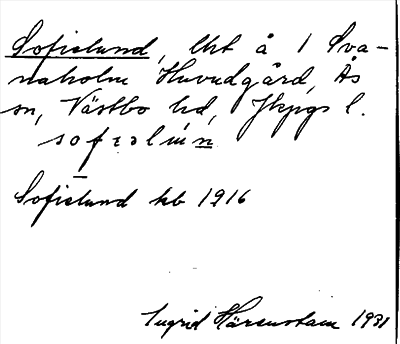 Sofislund, lht å 1 Sva-
naholm Huvudgård, Ås
sn, Västbo hd, Jkpgs l.
sofɪslúǹ
Sofislund kb 1916
Ingrid Härenstam 1931